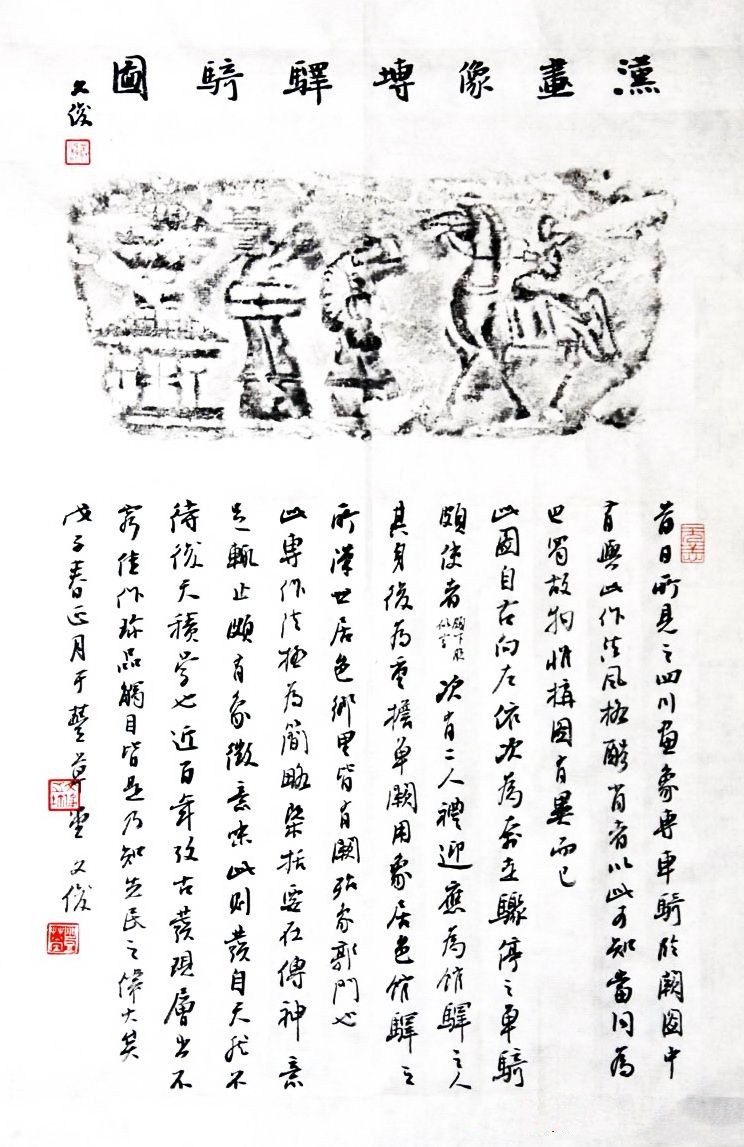 漢畫像塼驛騎圖
文俊
昔日所見之四川畫象專車騎臨闕圖中
有與此作法風格酷肖者以此可知當同為
巴蜀故物惟構圖有異而已
此圖自右向左依次為奔至驟停之單騎
頗使者 次有二人禮迎應為館驛之人
其身後為重檐單闕用象居邑館驛之
所漢世居邑鄉里皆有闕殆象郭門也
此專作法極為簡略檃括要在傳神 意
足輒止頗有象徵意味此則發自天然不
待後天積學也近百年考古發現層出不
窮佳作珍品觸目皆是乃知先民之偉大矣
戊子春正月于 草堂 文俊